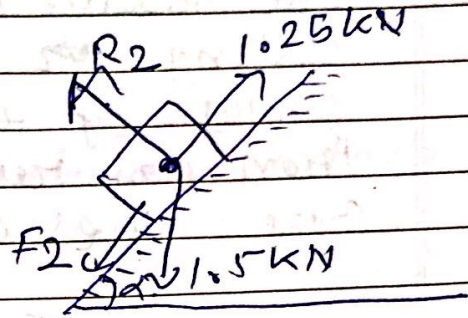 R2
1.25KN
F2
α
1.5KN